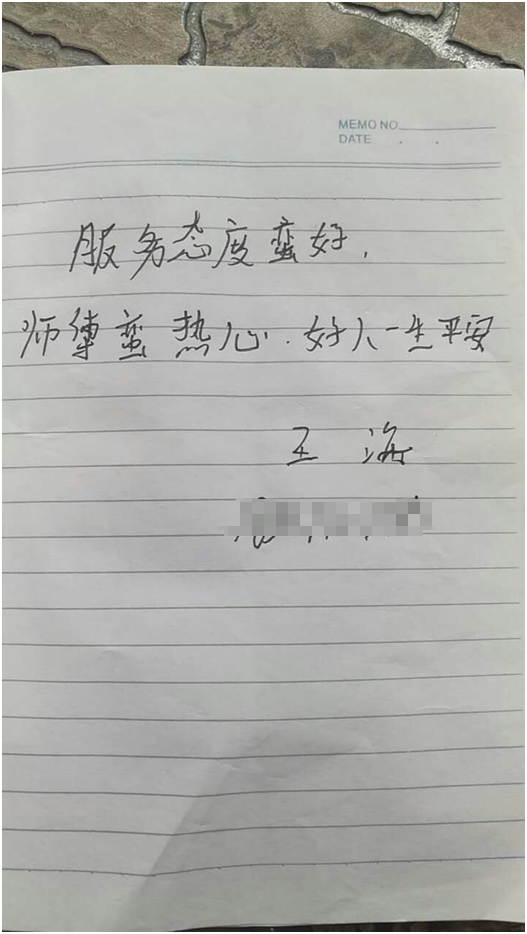 MEMO NO.
DATE . .
服务态度蛮好.
师傅蛮热心.好人一生平安
王海